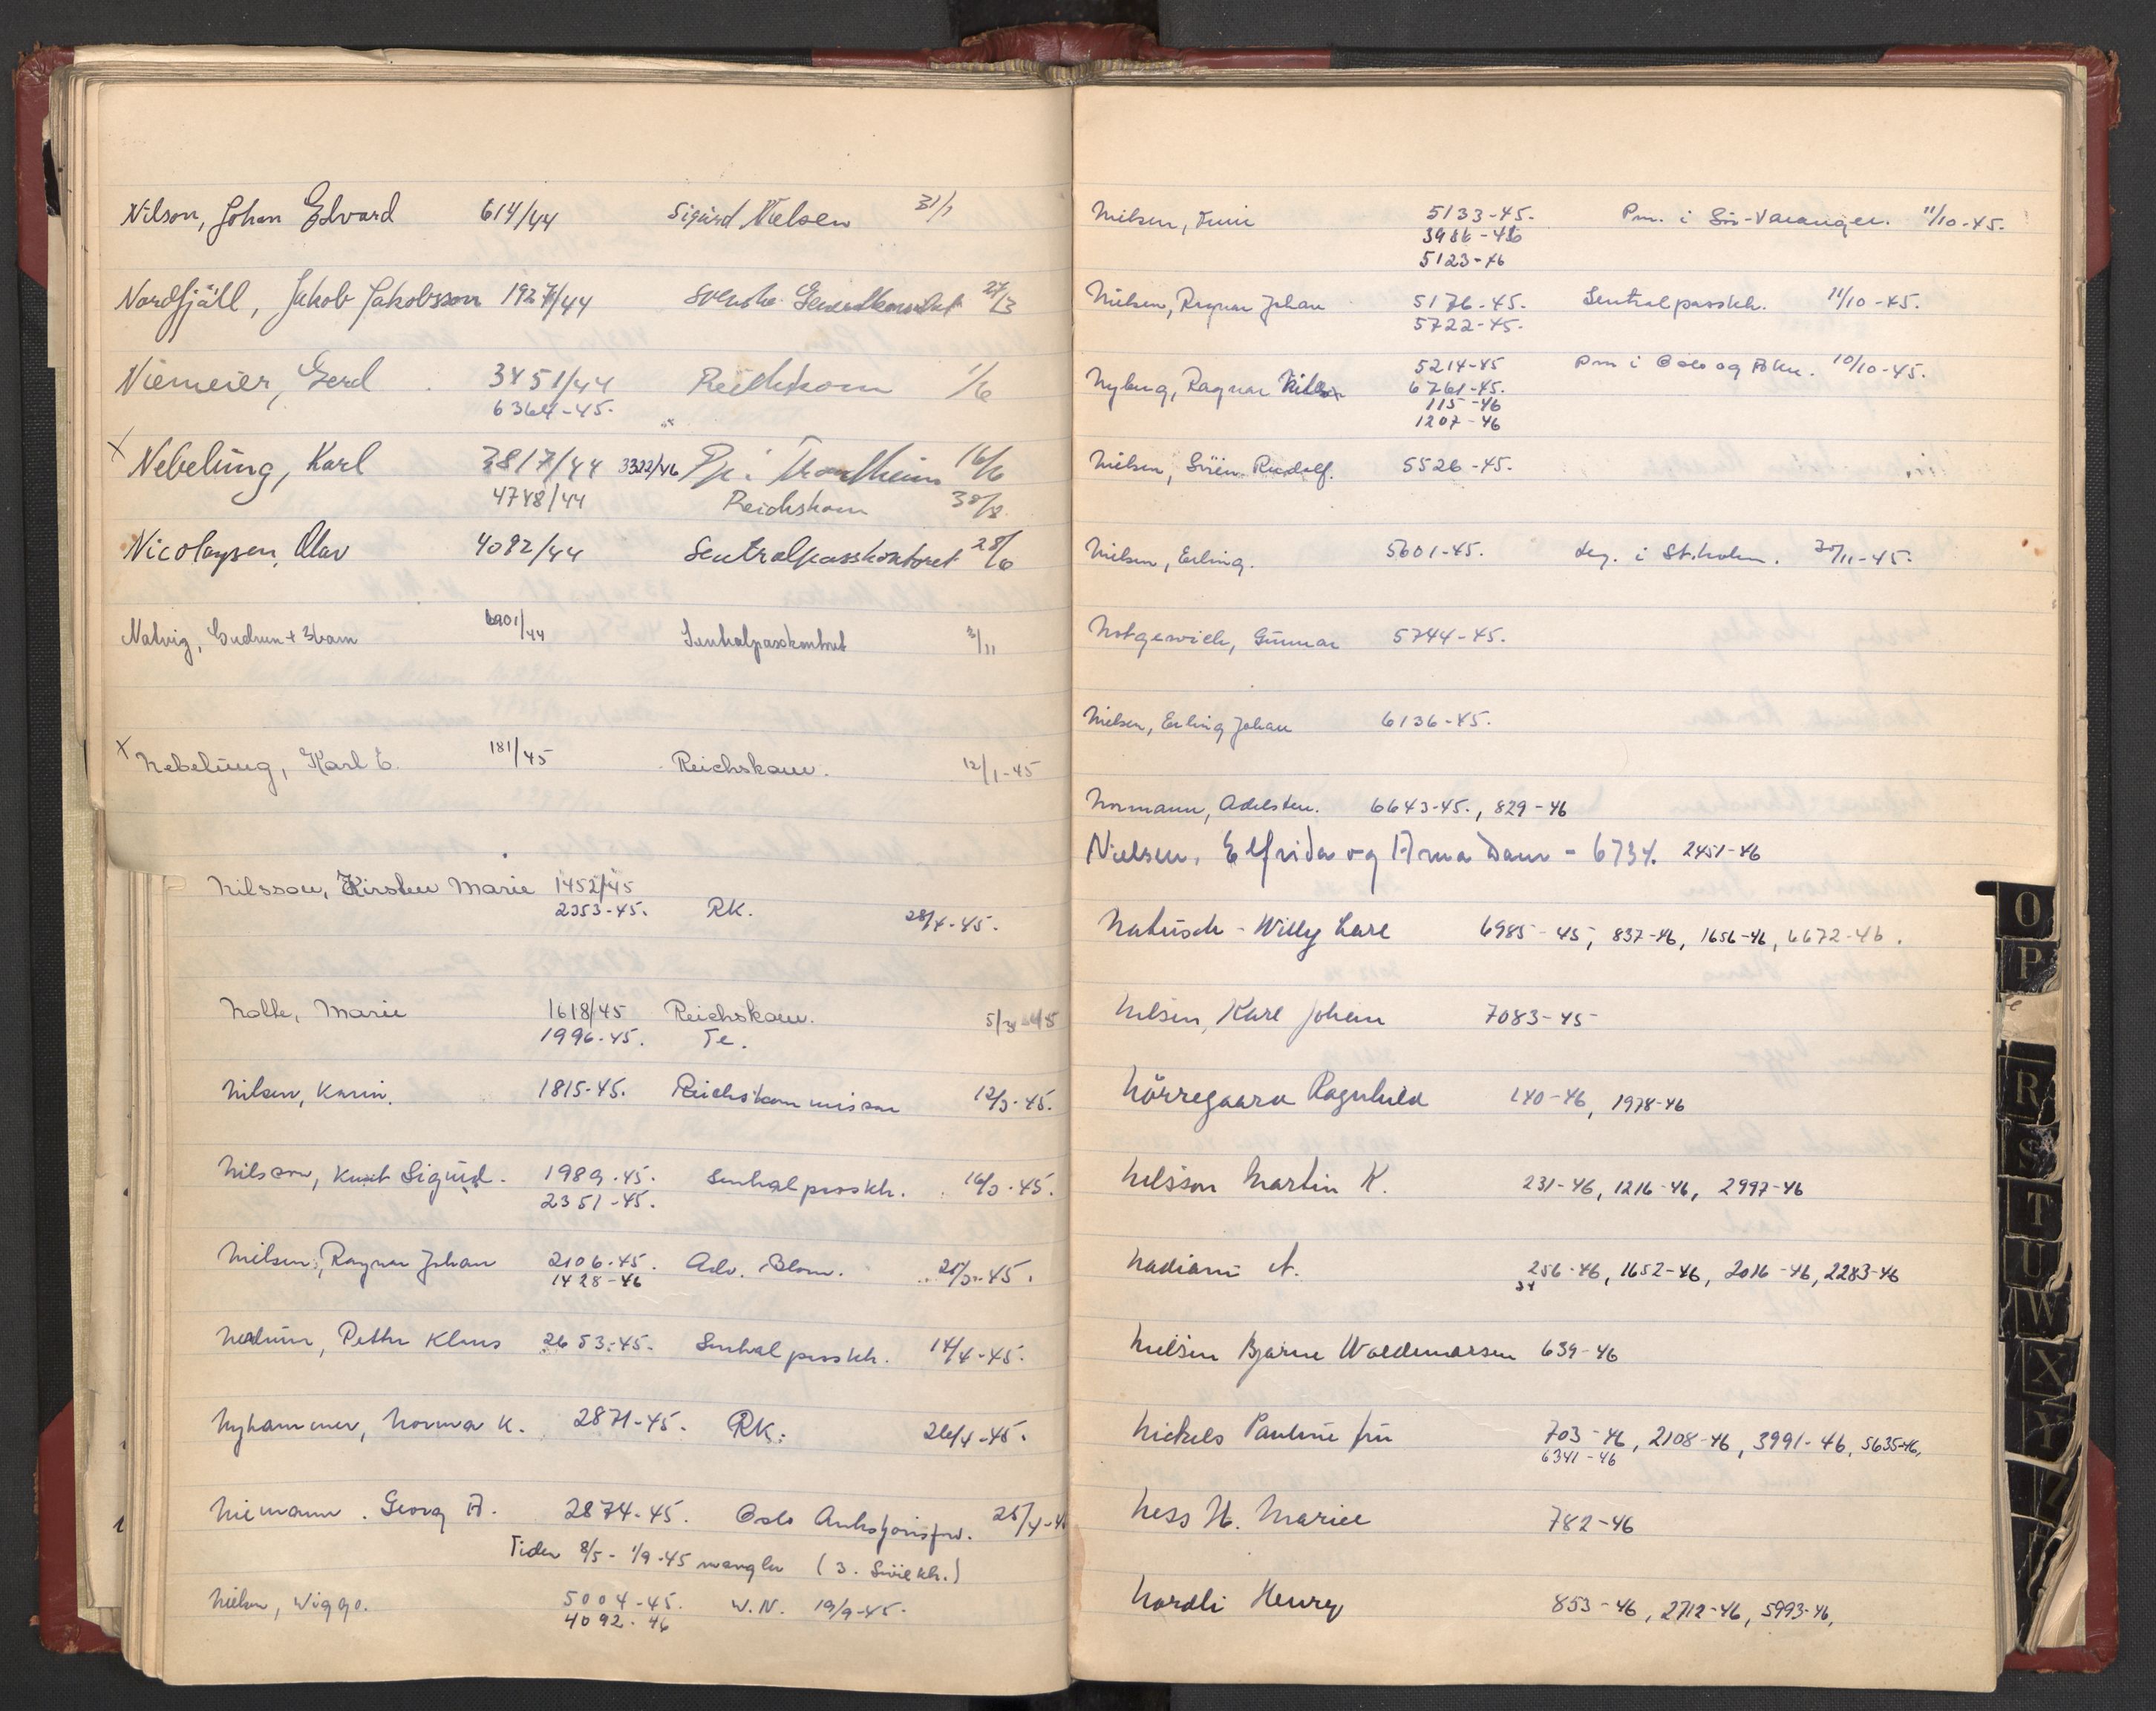 Nilson, Johan Edvard 614/44 Sigurd Nielsen 31/1
Nordfjäll, Jakob Jakobsson 1927/44 Svenske Generalkonsulat 27/3
Niemeier, Gerd 3451/44 Reichskom 1/6
6364-45.
X Nebelüng, Karl 3817/44 3322/46 Pp. i Trondheim 16/6
4748/44 Reichskom 30/8
Nicolaysen, Olav 4092/44 Sentralpasskontoret 28/6
Natvig, Gudrun + 3 barn 6901/44 Sentralpasskontoret 3/11
X Nebelüng, Karl E. 181/45 Reichskom. 12/1-45
Nilsson, Kirsten Marie 1452/45
2353-45. RK. 28/4-45.
Nolte, Marie 1618/45 Reichskom. 5/3-45
1996-45. Te.
Nilsen, Karin. 1815-45. Reichskommissar 12/3-45.
Nilsson, Knut Sigurd. 1989-45. Sentralpasskt. 16/3-45.
2351-45.
Nilsen, Ragnar Johan 2106-45. Adv. Blom.
1428-46
Petter Klaus 2653-45. Sentralpasskt. 14/4-45.
Nyhammer, Norma K. 2871-45. RK. 26/4-45.
Niemann. Georg A. 2874-45. Oslo
Tiden 8/5 - 1/9-45 mangler
Nielsen, Wiggo. 5004-45. W.N. 19/9-45.
4092-46
Nilsen, 5133-45. Pm. i Sör-Varanger. 11/10-45.
3986-46
5123-46
Nielsen, Ragnar Johan 5176-45. Sentralpasskt. 11/10-45.
5722-45.
5214-45 Pm i Oslo og 10/10-45.
Nyberg, Ragnar 6761-45.
115-46
1207-46
Nielsen, Svein Rudolf. 5526-45.
Nielsen, Erling. 5601-45. Leg. i St.holm. 30/11-45.
Notgewich, Gunnar 5744-45.
Nielsen, Erling Johan 6136-45.
Normann, Adelsten. 6643-45., 829-46
Nielsen, Elfrida og 6734. 2451-46
Natüsch - Willy Carl 6985-45, 837-46, 1656-46, 6672-46.
Nilsen, Karl Johan 7083-45
Nörregaard Ragnhild 140-46, 1978-46
Nilsson Martin K. 231-46, 1216-46, 2997-46
Nadiani A. 256-46, 1652-46, 2016-46, 2283-46
Nilsen Bjarne Waldemarsen 639-46
Nickels Pauline frü 703-46, 2108-46, 3991-46, 5635-46,
6341-46
Ness H. Mariel 782-46
Nordli Henry 853-46, 2712-46, 5993-46,
O
P
R
S
T
U
W
X
Y
Z